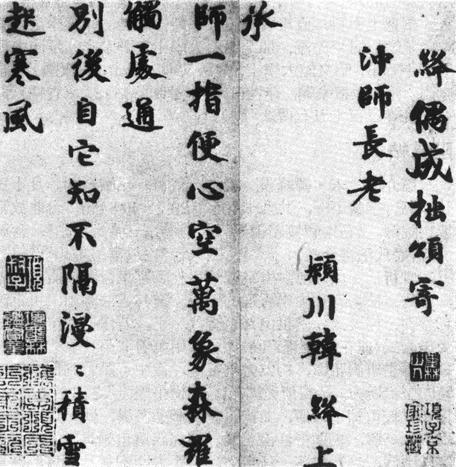 絳偶成拙頌寄
沖師長老
頴川韓絳上
承
師一指便心空萬象森羅
觸處通
別後自它知不隔漫〻積雪
起寒風
項子京
家珍藏